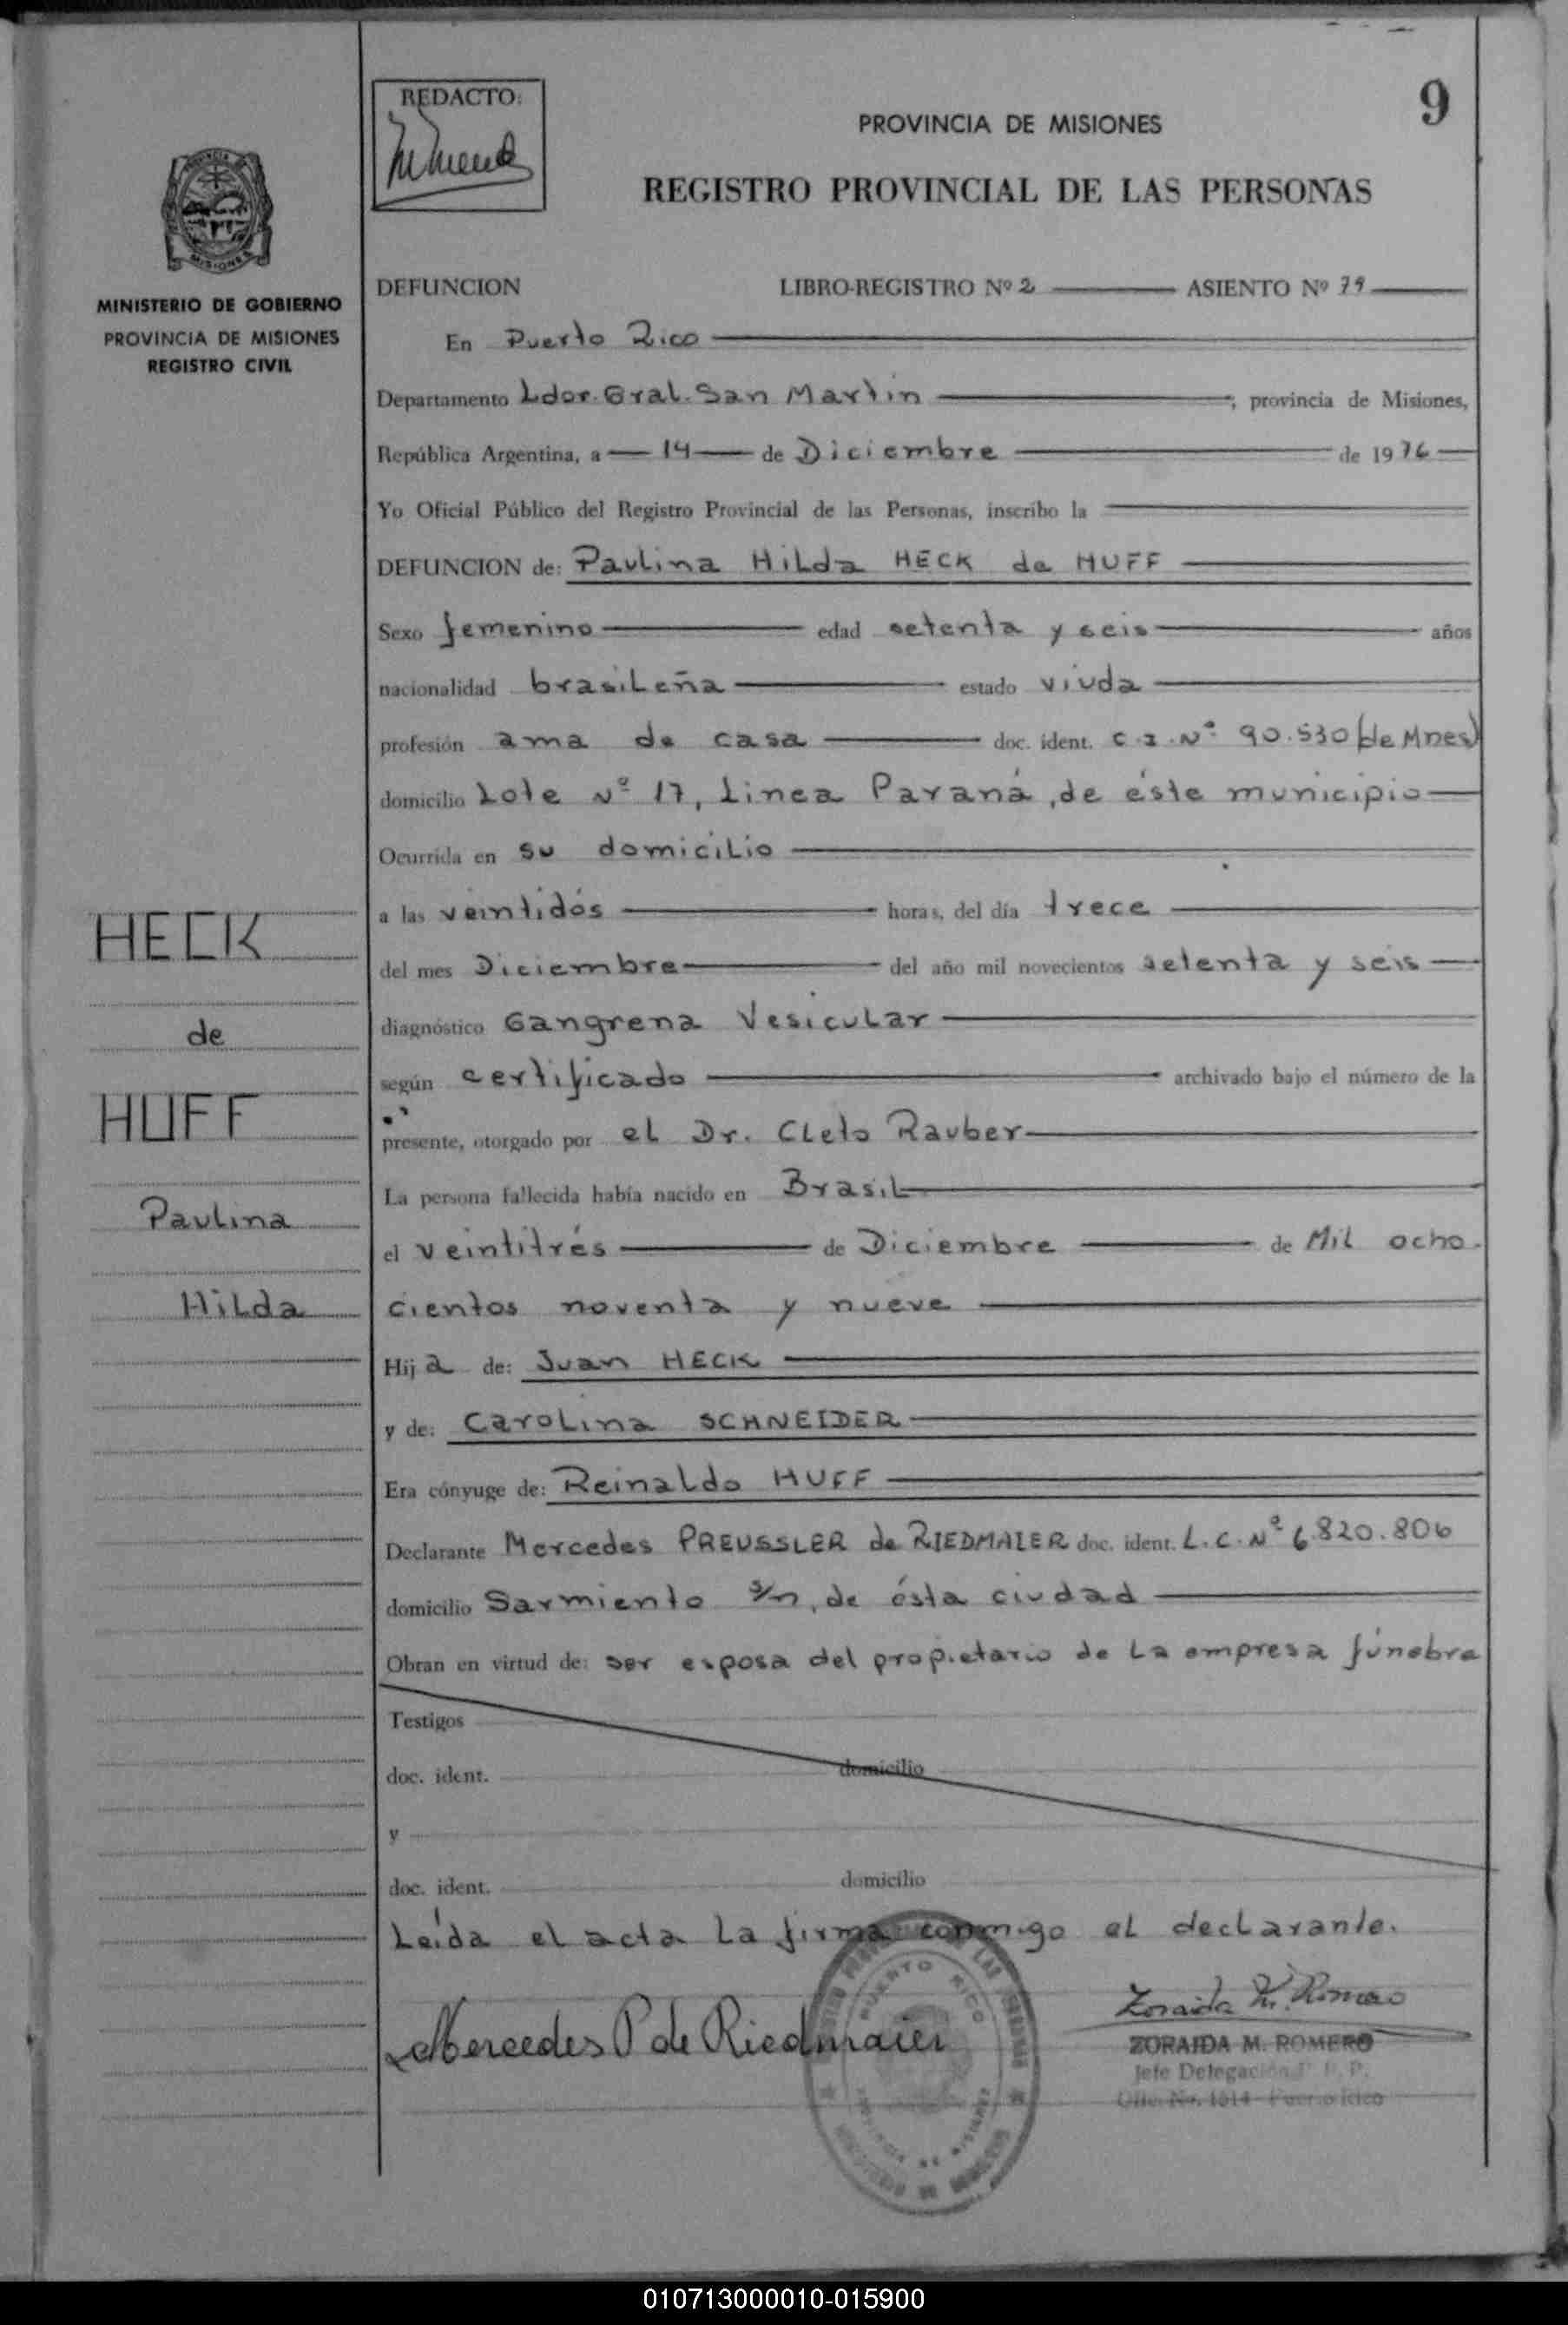 9
REDACTO:
PROVINCIA DE MISIONES
REGISTRO PROVINCIAL DE LAS PERSONAS
PROVINCIA DE
MISIONES
MINISTERIO DE GOBIERNO
PROVINCIA DE MISIONES
REGISTRO CIVIL
DEFUNCION LIBRO-REGISTRO Nº 2 ASIENTO Nº 79
En Puerto Rico
Departamento Ldor. Gral. San Martin, provincia de Misiones,
República Argentina, a 14 de Diciembre de 1976
Yo Oficial Público del Registro Provincial de las Personas, inscribo la
DEFUNCION de: Paulina Hilda HECK de HUFF
Sexo femenino edad setenta y seis años
nacionalidad brasileña estado viuda
profesión ama de casa doc. ident. C.I. Nº 90.530 (de Mnes)
domicilio Lote Nº 17, Linea Paraná, de éste municipio
Ocurrida en su domicilio
a las veintidós horas, del día trece
del mes Diciembre del año mil novecientos setenta y seis
diagnóstico Gangrena Vesicular
según certificado archivado bajo el número de la
presente, otorgado por el Dr. Cleto Rauber
La persona fallecida había nacido en Brasil
el veintitrés de Diciembre de Mil ocho.
cientos noventa y nueve
Hija de: Juan HECK
y de: Carolina SCHNEIDER
Era cónyuge de: Reinaldo HUFF
Declarante Mercedes PREUSSLER de RIEDMAIER doc. ident. L.C. Nº 6.820.806
domicilio Sarmiento s/n, de ésta ciudad
Obran en virtud de: ser esposa del propietario de la empresa fúnebre
Testigos
doc. ident. domicilio
y
doc. ident. domicilio
Leída el acta la firma conmigo el declarante.
Mercedes P de Riedmaier
Zoraida M. Romero
ZORAIDA M. ROMERO
Jefe Delegación R. P. P.
Ofic. No. 1614 - Puerto Rico
PUERTO RICO
HECK
de
HUFF
Paulina
Hilda
010713000010-015900